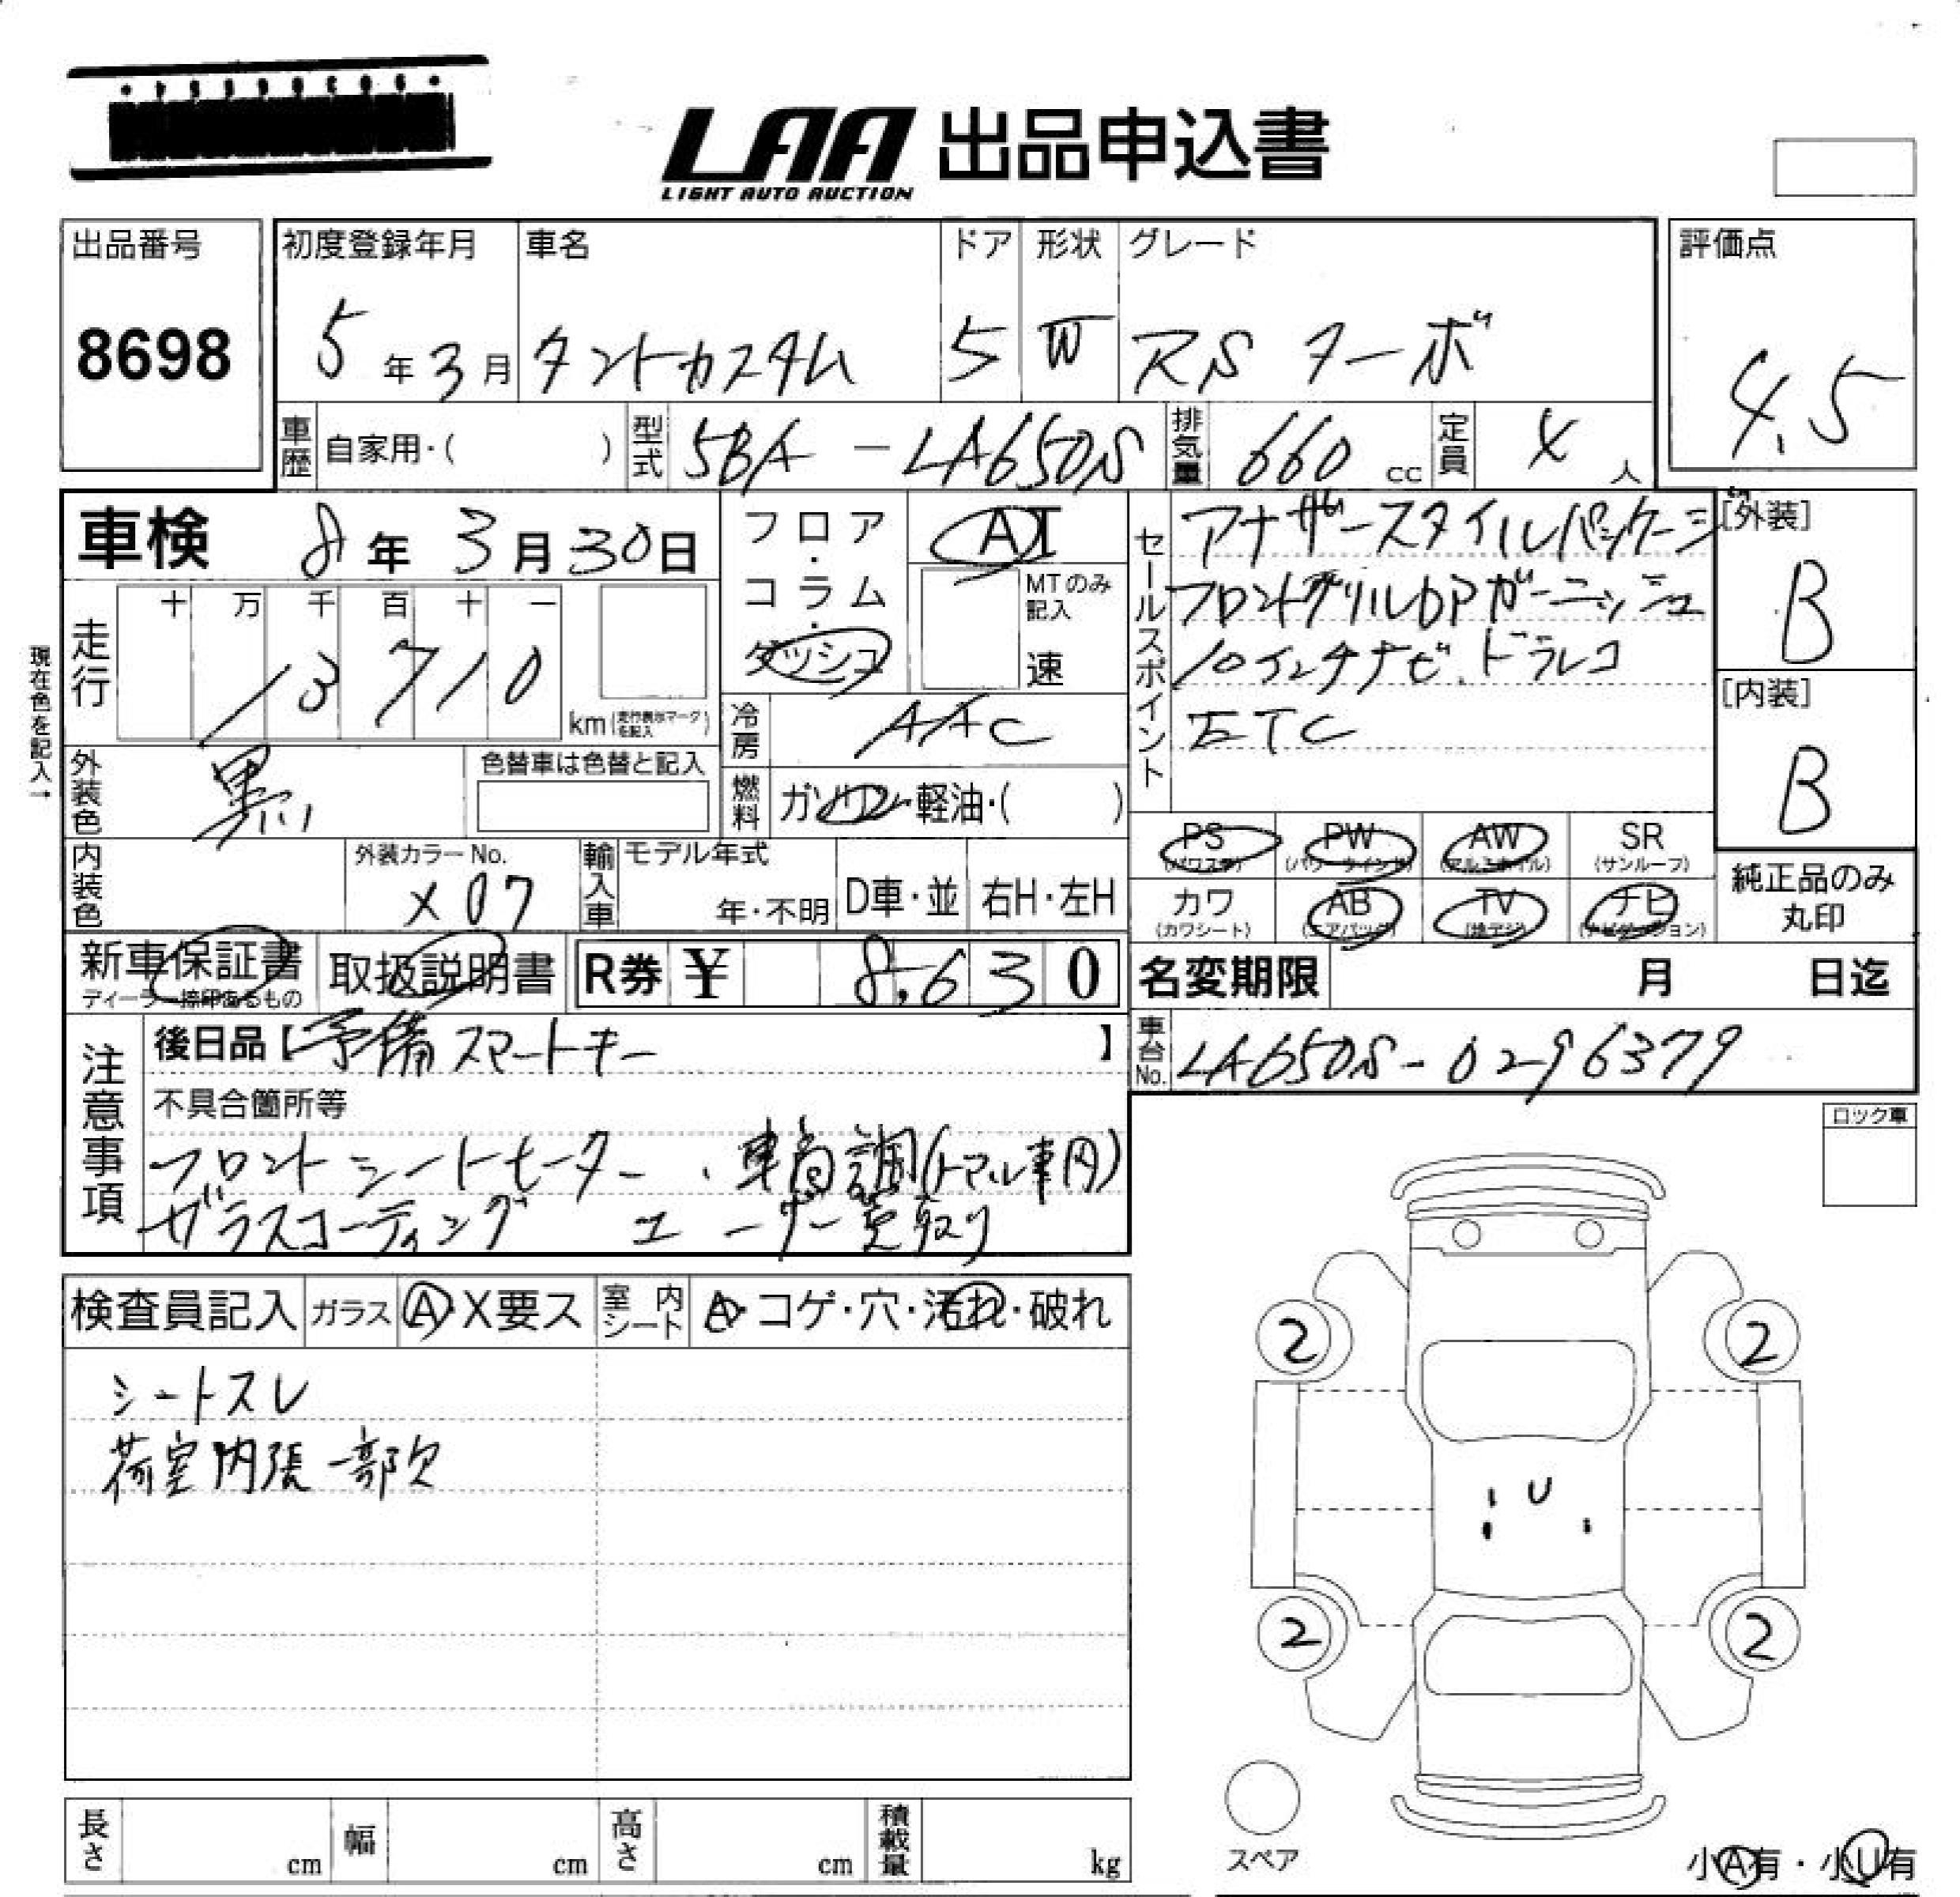 LAA 出品申込書
LIGHT AUTO AUCTION
出品番号
8698
初度登録年月
5年3月
車名
タントカスタム
ドア
5
形状
W
グレード
RS ターボ
評価点
4.5
車歴
自家用・( )
型式
5BA - LA650S
排気量
660 cc
定員
4 人
車検 8年3月30日
フロア・コラム・ダッシュ
AT
MTのみ記入
速
セールスポイント
アナザースタイルパッケージ
フロントグリルUPガーニッシュ
10インチナビ、ドラレコ
ETC
[外装]
B
[内装]
B
現在色を記入→
走行
十 万 千 百 十 一
13710
km (走行表示マークを記入)
冷房
AAC
外装色
黒
色替車は色替と記入
燃料
ガソリン・軽油・( )
内装色
外装カラーNo.
X07
輸入車
モデル年式
年・不明
D車・並
右H・左H
PS (パワステ)
PW (パワーウインド)
AW (アルミホイル)
SR (サンルーフ)
カワ (カワシート)
AB (エアバッグ)
TV (地デジ)
ナビ (ナビゲーション)
純正品のみ丸印
新車保証書
ディーラー捺印あるもの
取扱説明書
R券 ¥ 8,630
名変期限 月 日迄
注意事項
後日品【予備スマートキー】
車台No.
LA650S-0296379
不具合箇所等
フロントシートヒーター、車高調(トランク車内)
ガラスコーティング ユーザー買取り
ロック車
検査員記入
ガラス A・X要ス
室内シート A・コゲ・穴・汚れ・破れ
シートスレ
荷室内張一部欠
2 2
U
2 2
スペア
長さ cm
幅 cm
高さ cm
積載量 kg
小A有・小U有